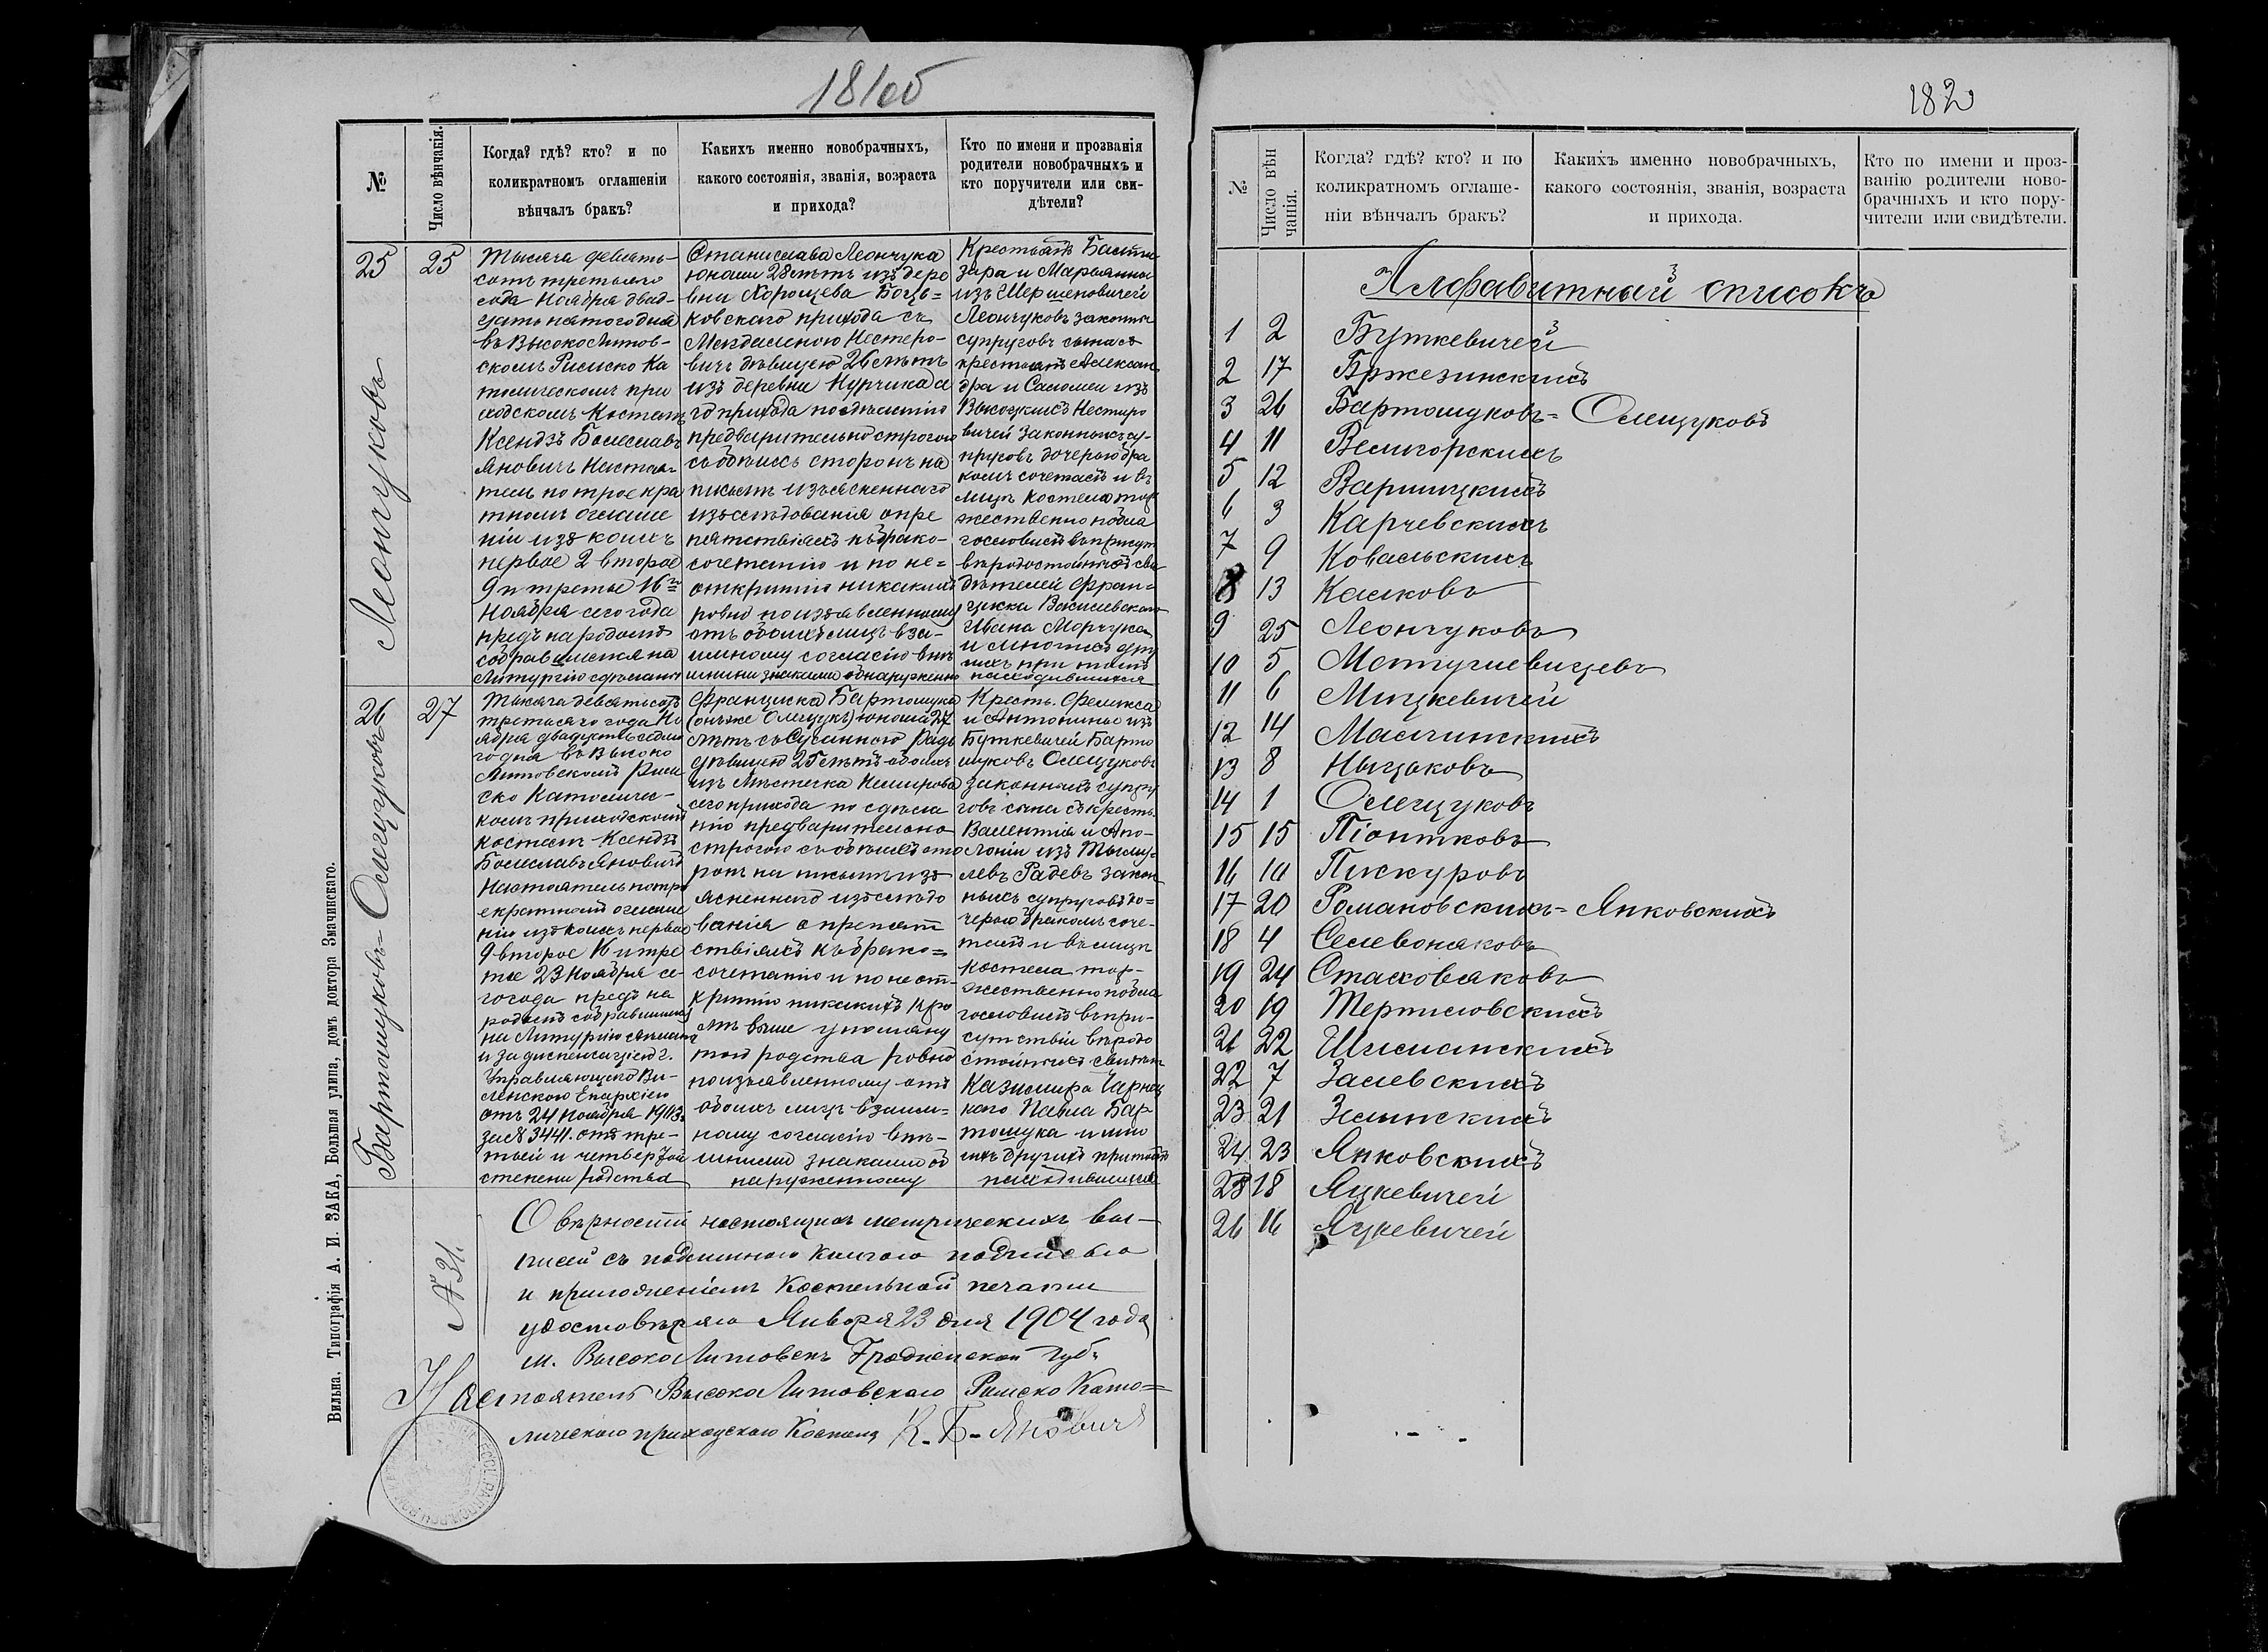 181об
№
Число вѣнчанія.
Когда? гдѣ? кто? и по
коликратномъ оглашеніи
вѣнчалъ бракъ?
Какихъ именно новобрачныхъ,
какого состоянія, званія, возраста
и прихода?
Кто по имени и прозванія
родители новобрачныхъ и
кто поручители или сви-
дѣтели?
25
25
Леончуковъ
Тысяча девять-
сотъ третьяго
года Ноября двад-
цать пятого дня
въ Высоко Литов-
скомъ Римско Ка
толическомъ при
ходскомъ Костелѣ
Ксендзъ Болеславъ
Яновичъ Настоя-
тель по трое кра
тномъ оглаше
ніи изъ коихъ
первое 2 второе
9 и третье 16го
Ноября сего года
предъ народомъ
собравшимся на
Литургію сдѣланномъ
Станислава Леончука
юноши 28 лѣтъ изъ дере
вни Хорощева Боць=
ковскаго прихода съ
Магдаленою Нестеро-
вичъ дѣвицею 26 лѣтъ
изъ деревни Курчика се
го прихода по сдѣланію
предварительно строгого
съ обѣихъ сторонъ на
письмѣ изъясненнаго
изслѣдованія о пре
пятствіяхъ къ брако-
сочетанію и по не=
открытію никакихъ
ровно по изъявленному
отъ обоихъ лицъ вза-
имному согласію внѣ
шними знаками обнаруженно
Крестьянъ Балта
зара и Марьянны
изъ Шершеновичей
Леончуковъ законны
супруговъ сына съ
крестьянъ Алексан
дра и Саломеи изъ
Высоцкихъ Нестеро
вичей законныхъ су-
пруговъ дочерью бра
комъ сочеталъ и въ
лицѣ костела тор
жественно побла
гословилъ въ присут
вѣродостойныхъ сви
дѣтелей Фран=
циска Василевскаго
Ивана Морчука
и многихъ дру
гихъ при томъ
находившихся
26
27
Бартошуковъ-Олещуковъ
Тысяча девятьсотъ
третьяго года Но
ября двадцать седьмо
го дня въ Высоко
Литовскомъ Рим
ско Католичес-
комъ приходскомъ
костелѣ Ксендзъ
Болеславъ Яновичъ
Настоятель по тро
екратномъ оглаше
ніи изъ коихъ первое
9 второе 16 и тре
тье 23 Ноября се-
го года предъ на
родомъ собравшимся
на Литургію сдѣланно
и за диспенсаціею г.
Управляющего Ви-
ленскою Епархіею
отъ 24 Ноября 1903
за № 3441. отъ тре-
тьей и четвертой
степени родства
Франциска Бартошука
(онъ же Олещукъ) юноша 27
лѣтъ съ Сусанною Радь
дѣвицею 25 лѣтъ обоихъ
изъ Мѣстечка Немирова
сего прихода по сдѣла
нію предварительно
строгою съ обѣихъ сто
ронъ на письмѣ изъ
ясненнаго изслѣдо
ванія о препят
ствіяхъ къ брако=
сочетанію и по не от-
крытію никакихъ кро
мѣ выше упомяну
таго родства ровно
по изъявленному отъ
обоихъ лицъ взаим=
ному согласію внѣ-
шними знаками об
наруженному
Кресть. Феликса
и Антонины изъ
Буткевичей Барто
шуковъ Олещуковъ
законныхъ супру
говъ сына съ кресть.
Валентія и Апо-
лоніи изъ
левъ Радевъ закон
ныхъ супруговъ до=
черью бракомъ соче-
талъ и въ лицѣ
костела тор-
жественно побла
гословилъ въ при-
сутствіи вѣродо
стойныхъ свидѣт
Казимира Чарнец
каго Павла Бар
тошука и мно
гихъ другихъ при томъ
находившихся
О вѣрности настоящихъ метрическихъ вы-
писей съ подлинною книгою подписью
и приложеніемъ Костельной печати
удостовѣряю Января 23 дня 1904 года
№ 31.
м. Высоко Литовскъ Гродненской Губ.
Настоятель Высоко Литовскаго Римско Като=
лическаго приходскаго Костела К. Б. Яновичъ
Вильна, Типографія А. И. ЗАКА, Большая улица, домъ доктора Змачинскаго.
182
№
Число вѣн
чанія.
Когда? гдѣ? кто? и по
коликратномъ оглаше-
ніи вѣнчалъ бракъ?
Какихъ именно новобрачныхъ,
какого состоянія, званія, возраста
и прихода.
Кто по имени и проз-
ванію родители ново-
брачныхъ и кто пору-
чители или свидѣтели.
Алфавитный списокъ
1 2 Буткевичей
2 17 Бржезинскихъ
3 26 Бартошуковъ=Олещуковъ
4 11 Велигорскихъ
5 12 Варшицкихъ
6 3 Карчевскихъ
7 9 Ковальскихъ
8 13 Калковъ
9 25 Леончуковъ
10 5 Матушевицевъ
11 6 Мицкевичей
12 14 Малчинскихъ
13 8 Ныцаковъ
14 1 Олещуковъ
15 15 Піонтковъ
16 10 Пискуровъ
17 20 Романовскихъ=Янковскихъ
18 4 Селевонаковъ
19 24 Стасховяковъ
20 19 Терписловскихъ
21 22 Шиманскихъ
22 7 Залевскихъ
23 21 Зелинскихъ
24 23 Янковскихъ
25 18 Яцкевичей
26 16 Яцкевичей